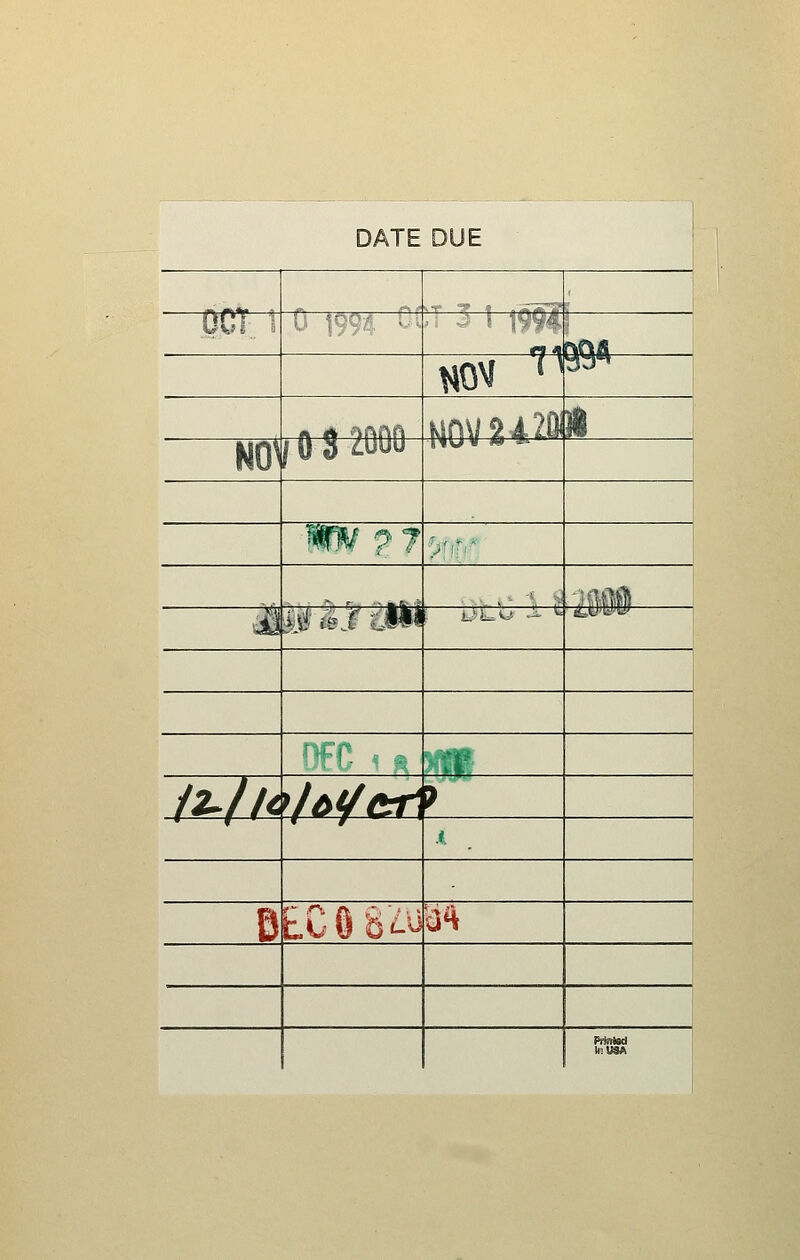 DATE DUE
OCT 1 0 1994 OCT 3 1 1994
NOV 7 1994
NOV 0 3 2000 NOV 2 4 2000
NOV 2 7 2000
NOV 2 7 2000 DEC 1 8 2000
DEC 1 8 2000
12/10/04
DEC 0 8 2004
Printed
in USA